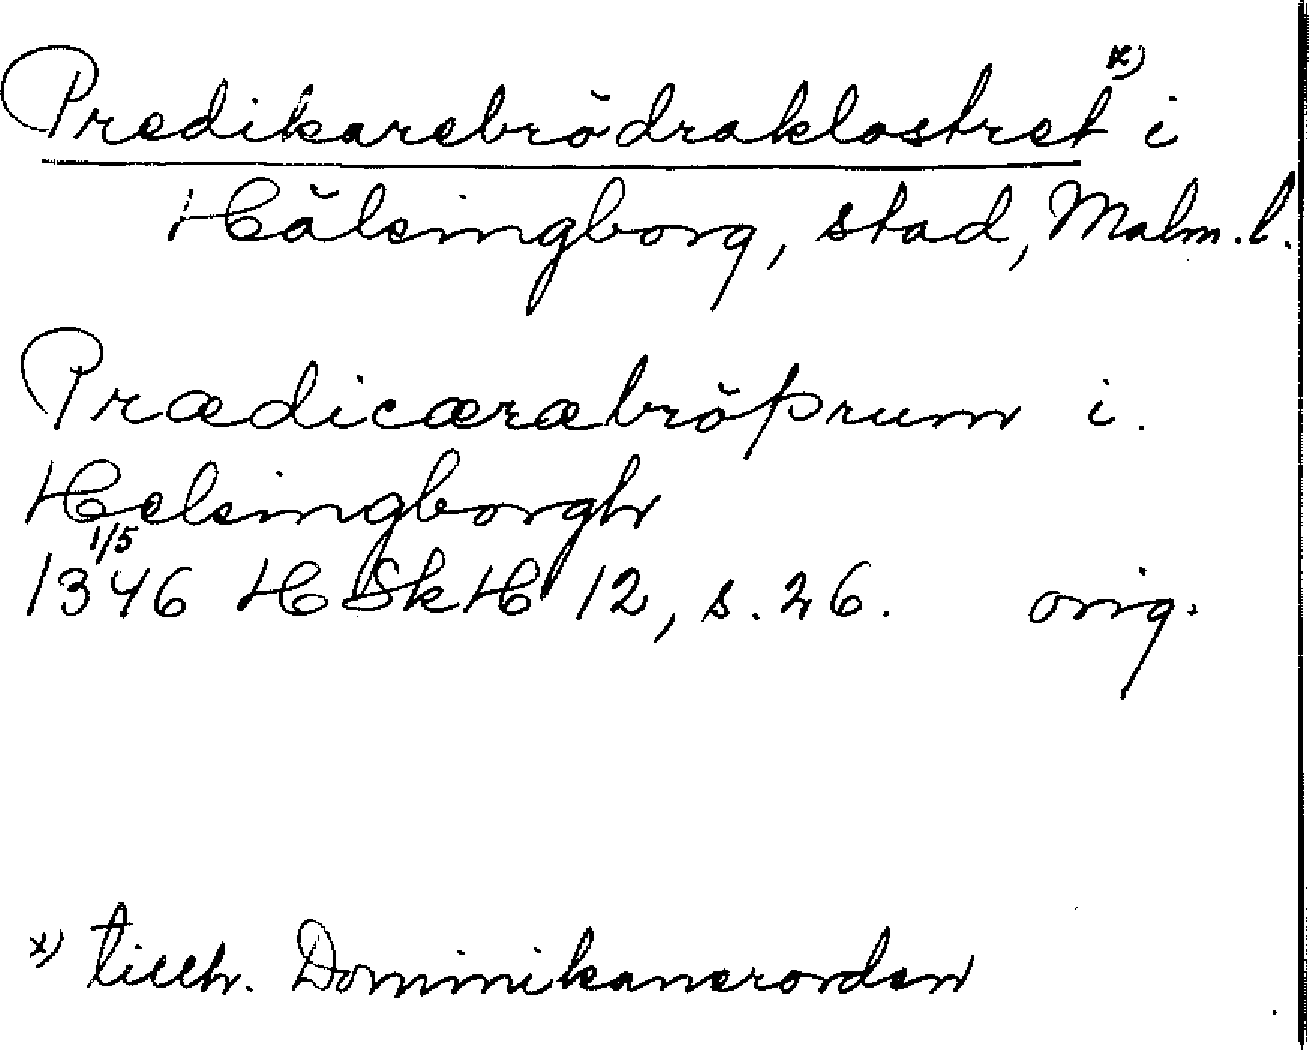 Predikarebrödraklostret x) i
Hälsingborg, stad, Malm. l.
Prædicærabröþrum i.
Helsingborgh
1346 1/5 HSkH 12, s. 26. orig.
x) tillh. Dominikanerorden